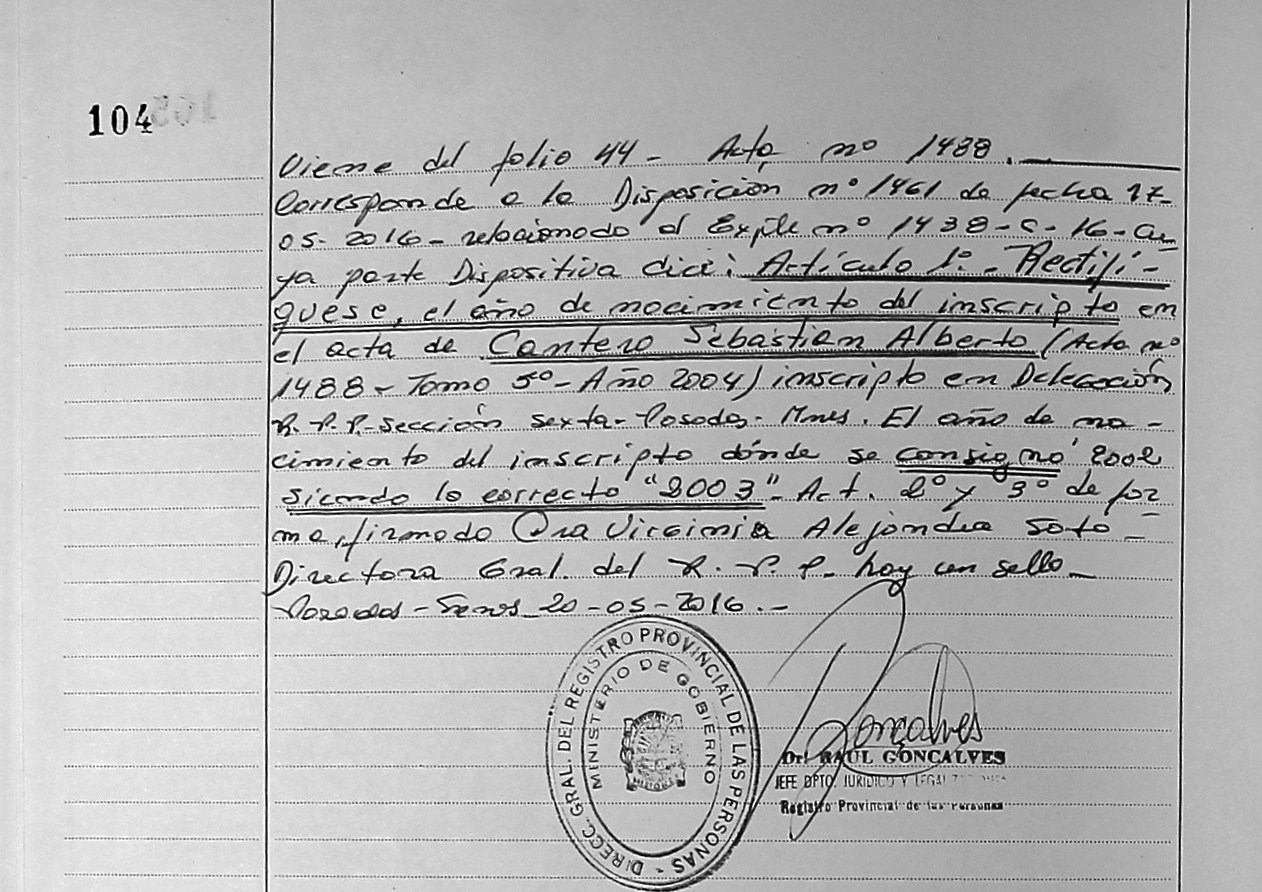 104
Viene del folio 44 - Acta nº 1488.
Corresponde a la Disposición nº 1461 de fecha 17-
05-2016 - relacionado al Expte nº 1438-C-16-cu
ya parte Dispositiva dice: Artículo 1º - Rectifí-
quese, el año de nacimiento del inscripto en
el acta de Cantero Sebastian Alberto (Acta nº
1488 - Tomo 5º - Año 2004) inscripto en Delegación
R.P.P. Sección sexta - Posadas - Mnes. El año de na-
cimiento del inscripto dónde se consignó 2002
siendo lo correcto "2003" - Art. 2º y 3º de for
ma, firmado Dra Virginia Alejandra Soto -
Directora Gral. del R.P.P. hay un sello -
Posadas - 20-05-2016.-
DIRECC. GRAL. DEL REGISTRO PROVINCIAL DE LAS PERSONAS -
MINISTERIO DE GOBIERNO
MISIONES
Goncalves
Dr. RAUL GONCALVES
JEFE DPTO. JURIDICO Y LEGAL
Registro Provincial de las Personas